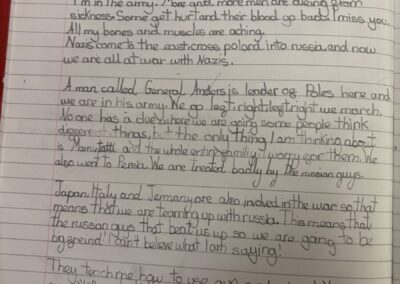 I'm in the army. More and more men are dieing from
sickness. Some get hurt and their blood go bad. I miss you.
All my bones and muscles are aching.
Nazis come to the east cross poland into russia and now
we are all at war with Nazis.
A man called General Anders is leader of Poles here and
we are in his army. We go left, right, left right we march.
No one has a clue where we are going some people think
different things, but the only thing I am thinking about
is Mamu, tatti and the whole entire familiy I worry for them. We
also went to Persia. We are treated badly by the russian guys.
Japan, Italy and Jermany are also inclved in the war so that
means that we are teaming up with russia. This means that
the russian guys that beat us up so we are gang to be
big freind. I can't believe what I am saying!
They teach me how to use